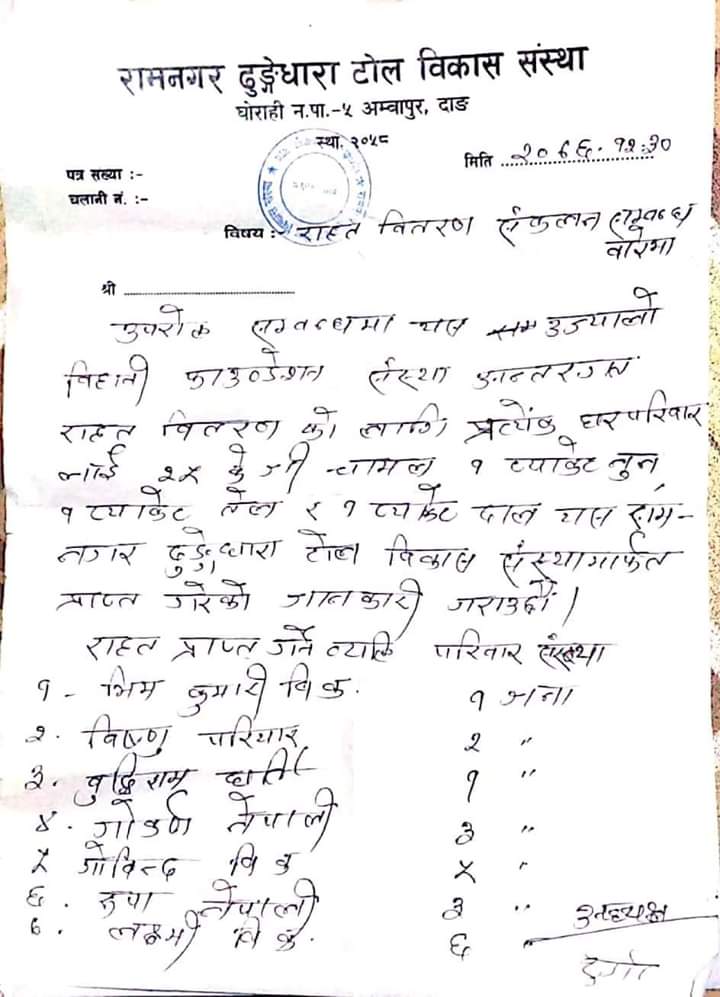 रामनगर ढुङ्गेधारा टोल विकास संस्था
घोराही न.पा.-५ अम्वापुर, दाङ
स्था. २०५८
मिति २०७६.१२.३०
पत्र सख्या :-
चलानी नं. :-
विषय :- राहत वितरण संकलन सम्वन्ध
वारेमा
श्री
उपरोक्त सम्वन्धमा यस उज्यालो
विहानी फाउण्डेशन संस्था अन्तरगत
राहत वितरण को लागि प्रत्येक घरपरिवार
लाई २५ के जी चामल १ प्याकेट नुन
१ प्याकेट तेल र १ प्याकेट दाल यस राम-
नगर ढुङ्गेधारा टोल विकास संस्थामार्फत
प्राप्त गरेको जानकारी गराउदछौं।
राहत प्राप्त गर्ने व्यक्ति परिवार संख्या
१ - भिम कुमारी वि.क. १ जना
२. विष्णु परियार २ "
३. वुद्धिराम घर्ती १ "
४. गोकर्ण नेपाली ३ "
५ गोविन्द वि क ५ "
६. रुपा नेपाली ३ "
७. लक्ष्मी वि क. ६
अध्यक्ष